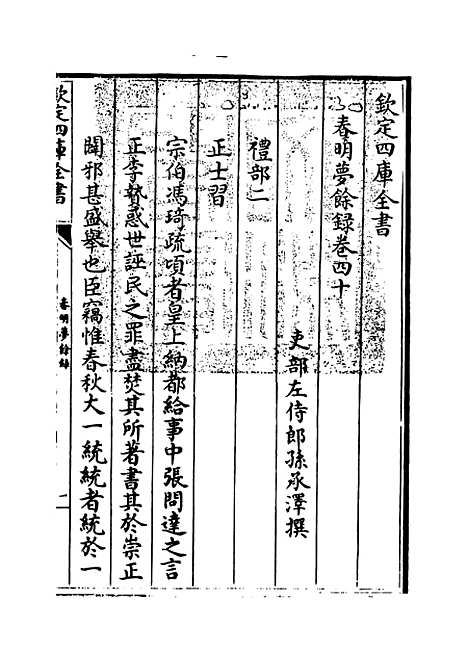 欽定四庫全書
春明夢餘錄卷四十
吏部左侍郎孫承澤撰
禮部二
正士習
宗伯馮琦疏頃者皇上納都給事中張問達之言
正李贄惑世誣民之罪盡焚其所著書其於崇正
闢邪甚盛舉也臣竊惟春秋大一統統者統於一
欽定四庫全書
春明夢餘錄
一